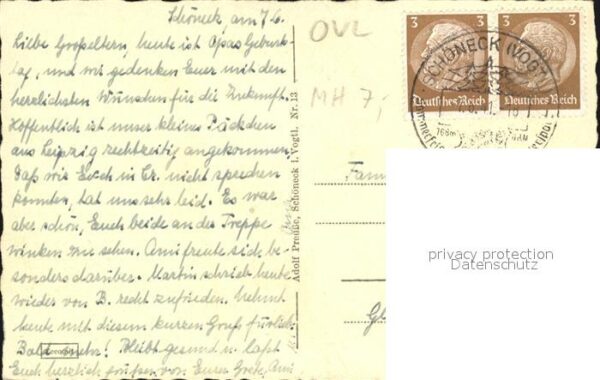 Schöneck am 7.6.
Liebe Großeltern, heute ist Opas Geburts-
tag, und wir gedenken Euer mit den
herzlichsten Wünschen für die Zukunft.
Hoffentlich ist unser kleines Päckchen
aus Leipzig rechtzeitig angekommen.
Daß wir Euch in Cr. nicht sprechen
konnten, hat uns sehr leid. Es war
aber schön, Euch beide an der Treppe
winken zu sehen. Ami freute sich be-
sonders darüber. Martin schrieb heute
wieder von B. recht zufrieden. Nehmt
heute mit diesem kurzen Gruß fürlieb.
Bald mehr! Bleibt gesund u. laßt
Euch herzlich grüßen von Eurer Grete, Ami
OVL
MH 7,-
Adolf Preuße, Schöneck i. Vogtl. Nr. 13
3 3
3 3
Deutsches Reich
Deutsches Reich
SCHÖNECK (VOGTL
Fam
Gl
privacy protection
Datenschutz